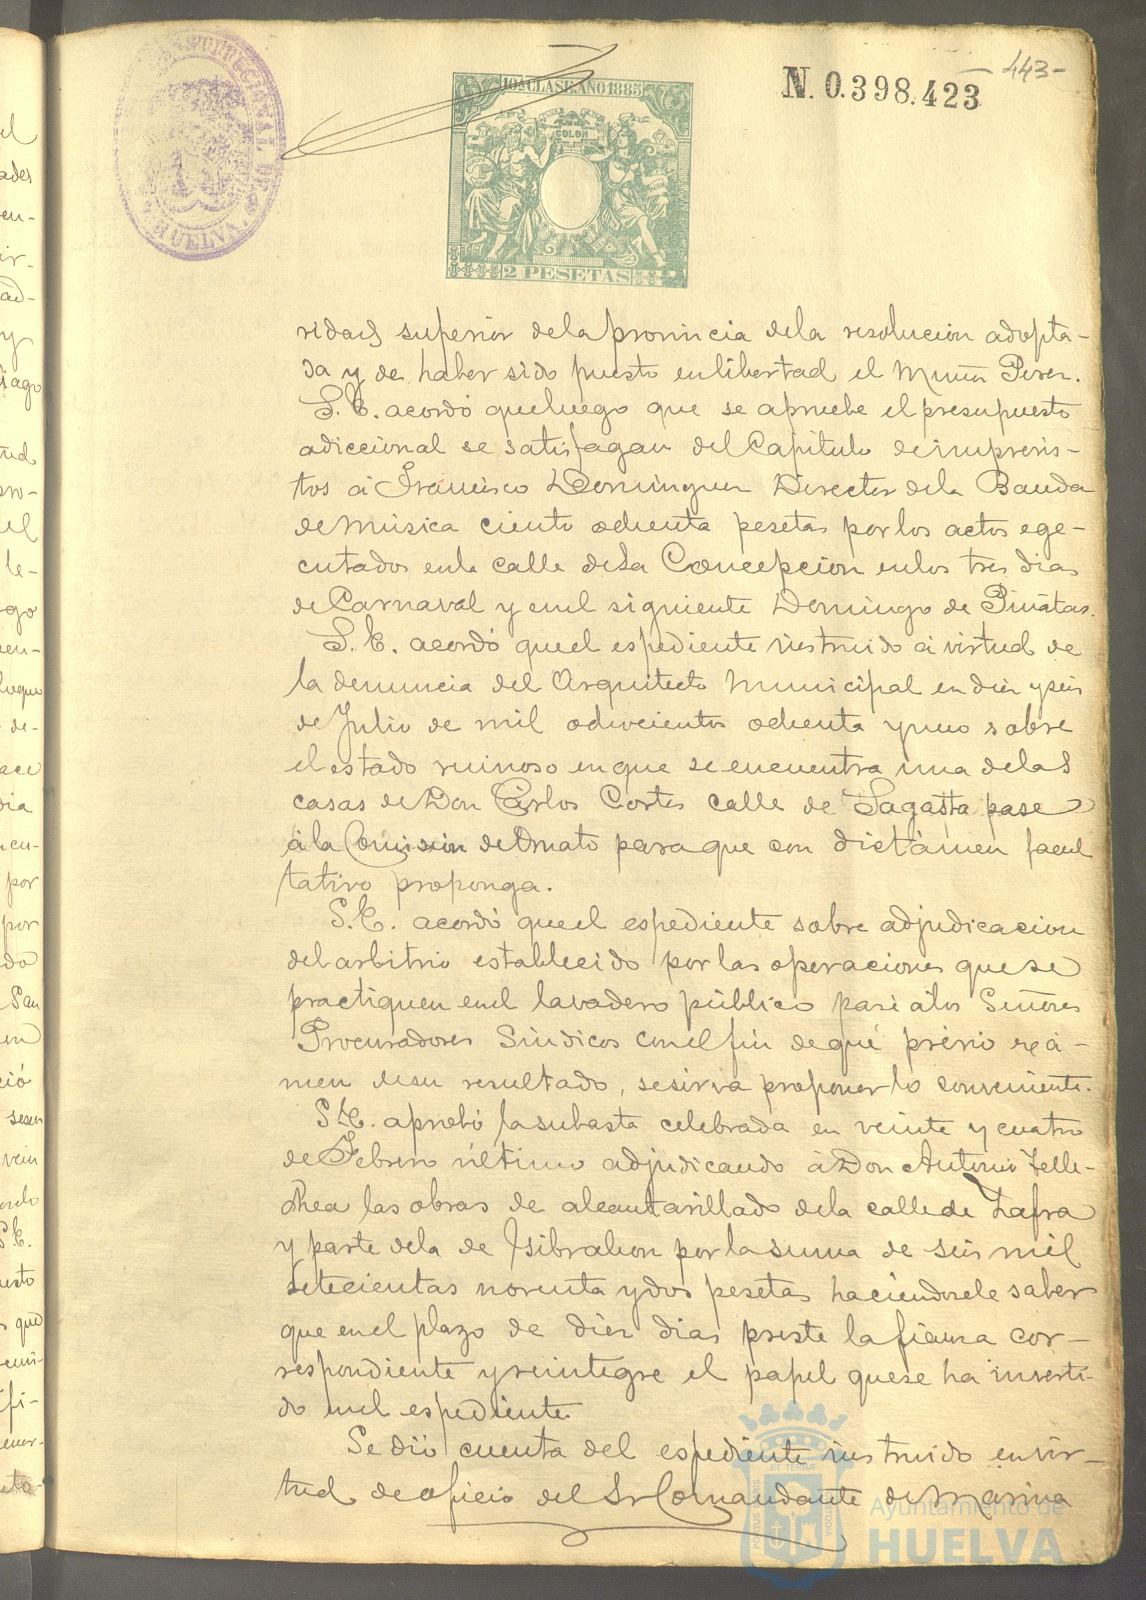 443-
N. 0.398.423
10ª CLASE. AÑO 1885
COLON
2 PESETAS
HUELVA
ridad superior dela provincia dela resolucion adopta-
da y de haber sido puesto en libertad el Muñiz Perez.
S. E. acordó queluego que se apruebe el presupuesto
adiccional se satisfagan del Capitulo de imprevis-
tos á Francisco Dominguez Director dela Banda
de Música ciento ochenta pesetas por los actos ege-
cutados enla calle dela Concepcion enlos tres dias
de Carnaval y enel siguiente Domingo de Piñatas.
S. E. acordó queel espediente instruido á virtud de
la denuncia del Arquitecto Municipal en diez y seis
de Julio de mil ochocientos ochenta y uno sobre
el estado ruinoso en que se encuentra una delas
casas de Don Carlos Cortes calle de Sagasta pase
á la Comision de Ornato para que con dictámen facul
tativo proponga.
S. E. acordó queel espediente sobre adjudicacion
del arbitrio establecido por las operaciones quese
practiquen enel lavadero público pase álos Señores
Procuradores Sindicos conel fin de qué prévio exá-
men desu resultado, sesirva proponer lo conveniente.
S. E. aprobó la subasta celebrada en veinte y cuatro
de Febrero último adjudicando á Don Antonio Telle-
chea las obras de alcantarillado dela calle de Zafra
y parte dela de Gibraleon por la suma de seis mil
setecientas noventa y dos pesetas haciendosele saber
que en el plazo de diez dias preste la fianza cor-
respondiente y reintegre el papel quese ha inverti-
do enel espediente
Se dió cuenta del espediente instruido en vir-
tud de oficio del Sr Comandante de Marina
Ayuntamiento de
HUELVA